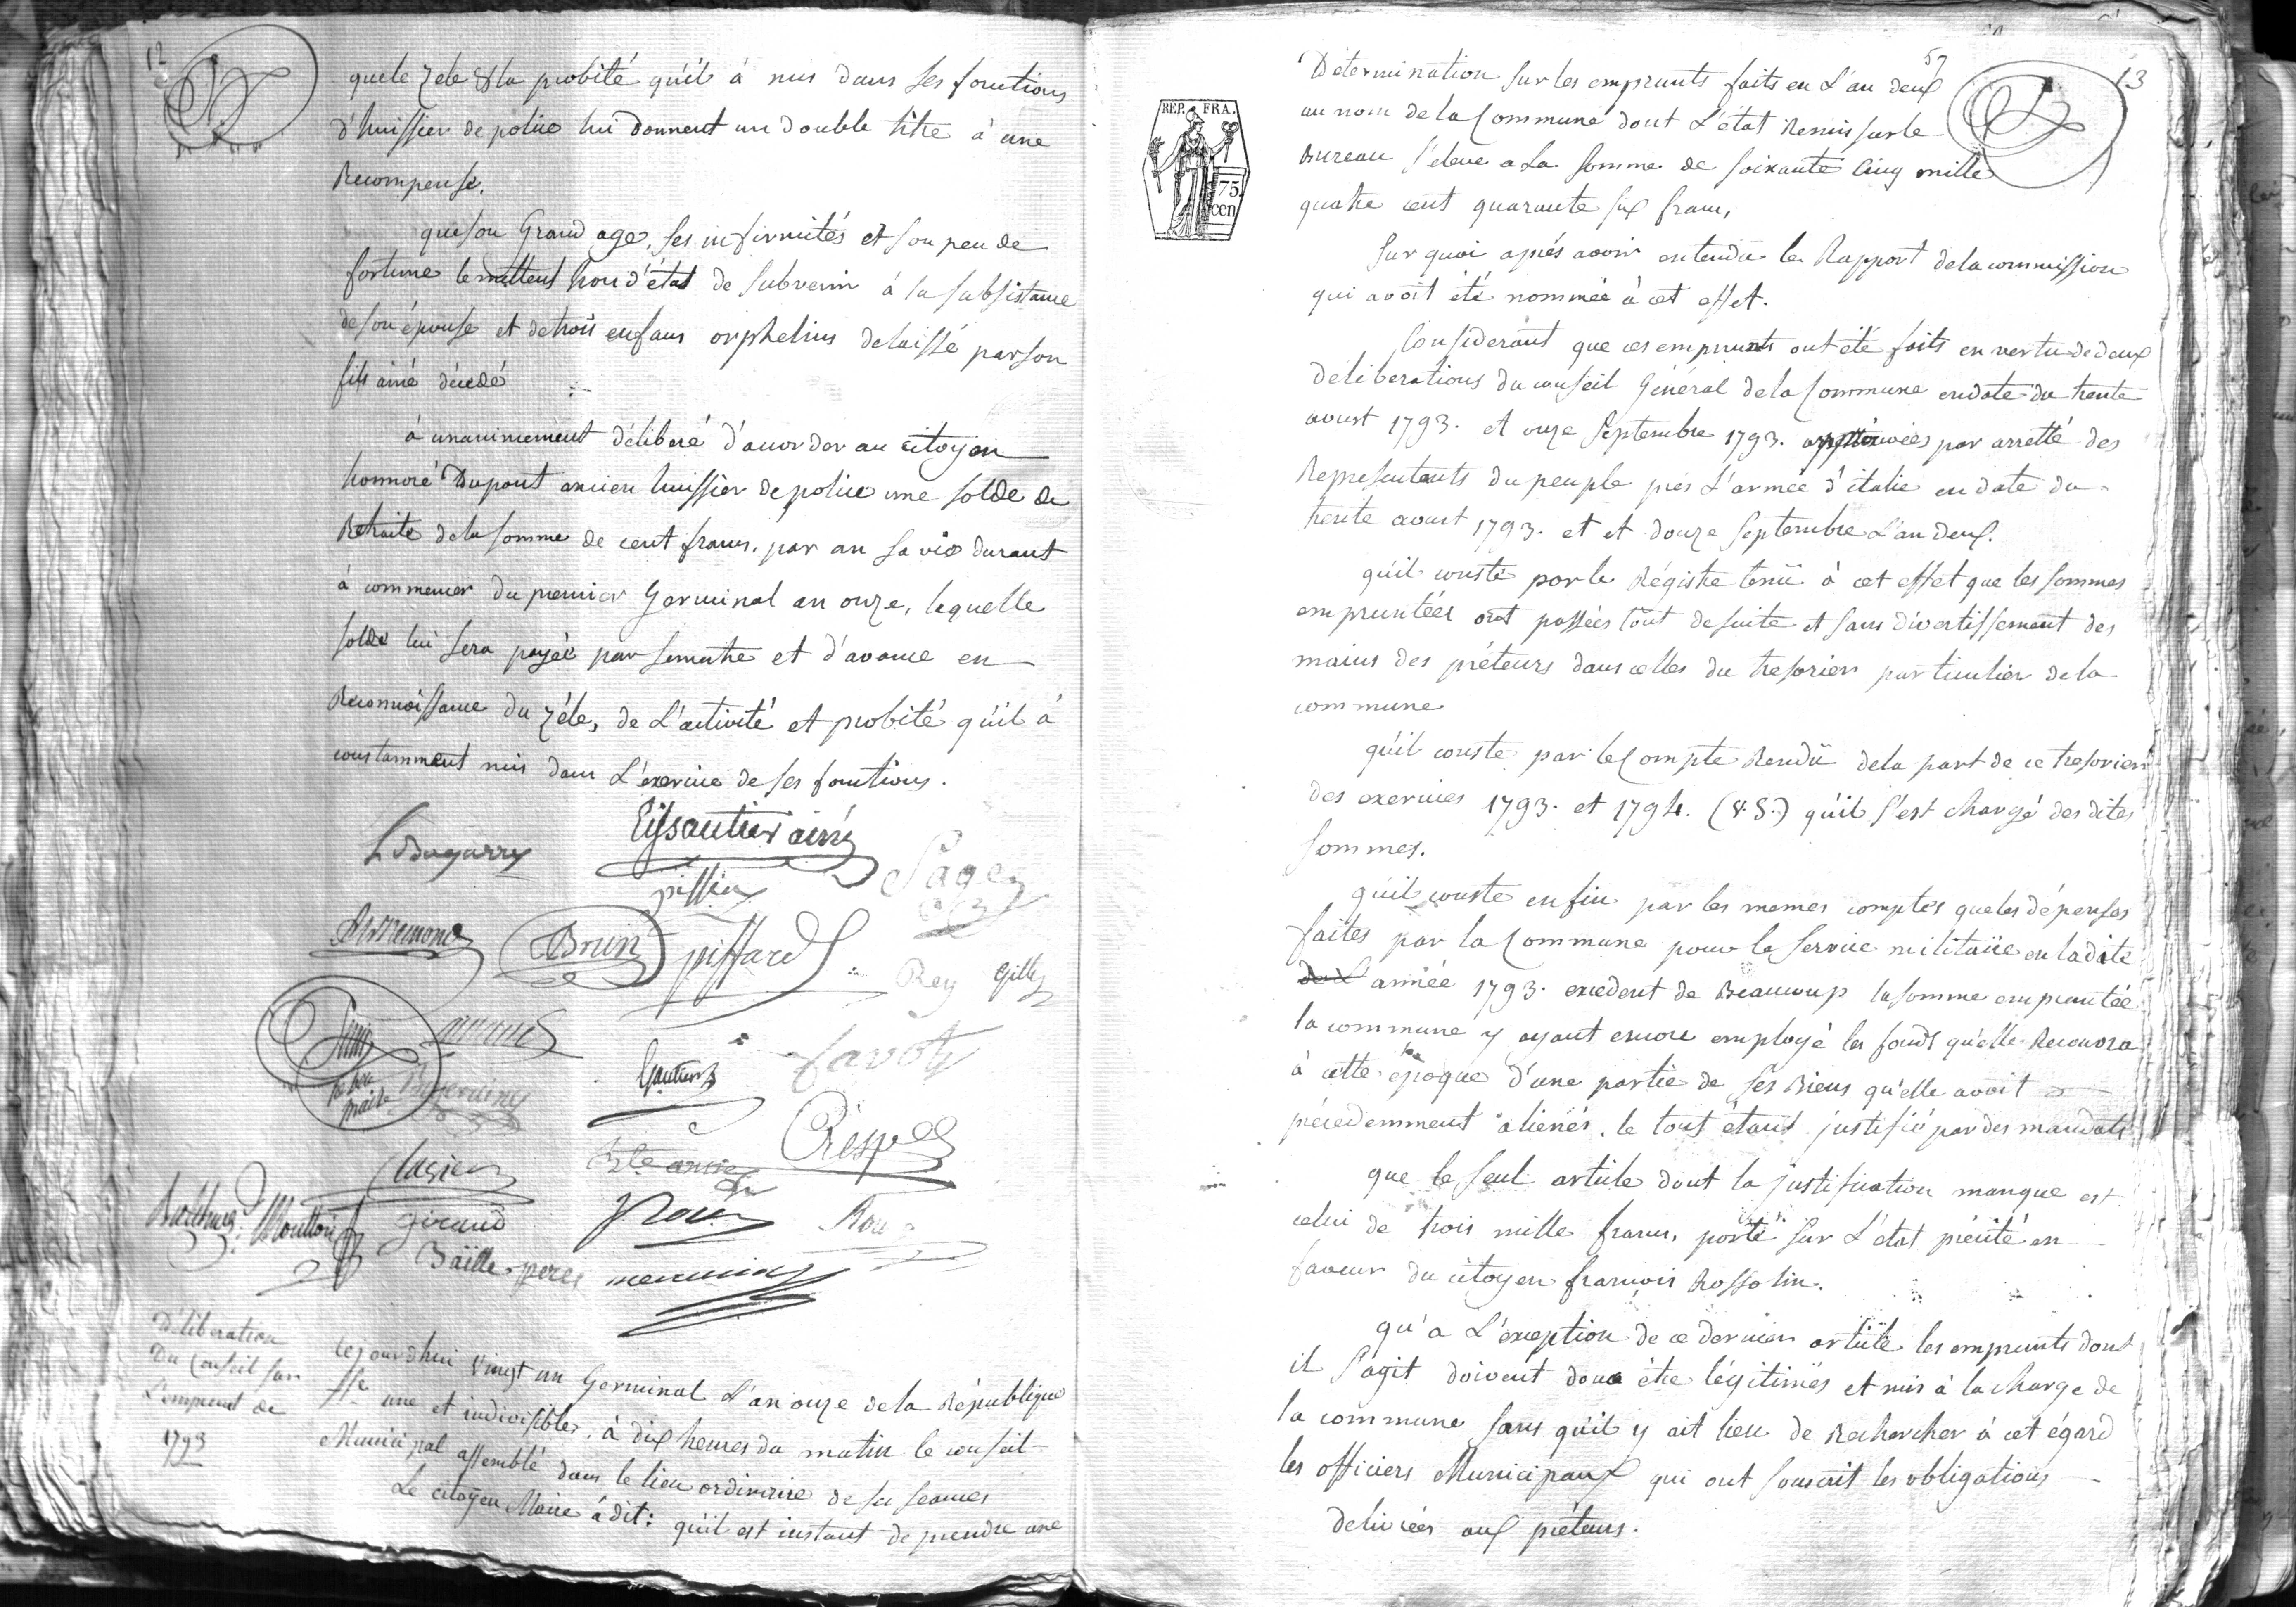 12
que le zele & la probité qu'il à mis dans ses fonctions
d'huissier de police lui donnent un double titre à une
Recompense.
que son Grand age, ses infirmités et son peu de
fortune le mettent hors d'état de subvenir à la subsistance
de son épouse et de trois enfans orphelins delaissé par son
fils ainé décedé
à unanimement déliberé d'accorder au citoyen
honnoré Dupont ancien huissier de police une solde de
Retraite de la somme de cent francs, par an sa vie durant
à commencer du premier Germinal an onze, laquelle
solde lui sera payée par semestre et d'avance en
Reconnoissance du zéle, de L'activité et probité qu'il à
constamment mis dans L'exercice de ses fonctions.
Eissautier ainé
Brun
piffard
Rey
Gilly
Gautier
favoty
Crespe
Giraud
Roux
Baille peres
Déliberation
Du Conseil sur
L'emprunt de
1793
Cejourdhui vingt un Germinal L'an onze de la République
ffse une et indivisible, à dix heures du matin le conseil
Municipal assemblé dans le lieu ordinaire de ses seances
Le citoyen Maire à dit: qu'il est instant de prendre une
57
13
REP. FRA.
75
cen
Détermination sur les emprunts faits en L'an deux
au nom de la Commune dont L'état Remis sur le
Bureau s'eleve a La somme de soixante Cinq mille
quatre cent quarante six francs,
Sur quoi aprés avoir entendu le Rapport de la commission
qui avoit été nommée à cet effet.
Considerant que ces emprunts ont été faits en vertu de deux
deliberations du conseil Général de la Commune en date du trente
aoust 1793. et onze Septembre 1793. approuvées par arretté des
Representants du peuple prés L'armée d'italie en date du
trente aoust 1793. et et douze Septembre L'an deux.
qu'il conste par le Régistre tenü à cet effet que les sommes
empruntées ont passées tout de suite et sans divertissement des
mains des préteurs dans celles du tresorier particulier de la
commune
qu'il conste par le Compte Rendü de la part de ce tresorier
des exercices 1793. et 1794. (V.S.) qu'il s'est chargé des dites
sommes.
qu'il conste enfin par les memes comptes que les dépenses
faites par la Commune pour le service militaire en la dite
année 1793. excedent de Beaucoup la somme empruntée
la commune y ayant encore employé les fonds qu'elle Recouvra
à cette époque d'une partie de ses Biens qu'elle avoit
précedemment aliénés. le tout étant justifié par des mandats
que le seul article dont la justification manque est
celui de trois mille francs, porté sur L'état précité en
faveur du citoyen francois Rossolin.
qu'a L'exception de ce dernier article les emprunts dont
il s'agit doivent donc étre légitimés et mis à la charge de
la commune sans qu'il y ait lieu de Rechercher à cet égard
les officiers Municipaux qui ont souscrit les obligations
delivrées aux préteurs.